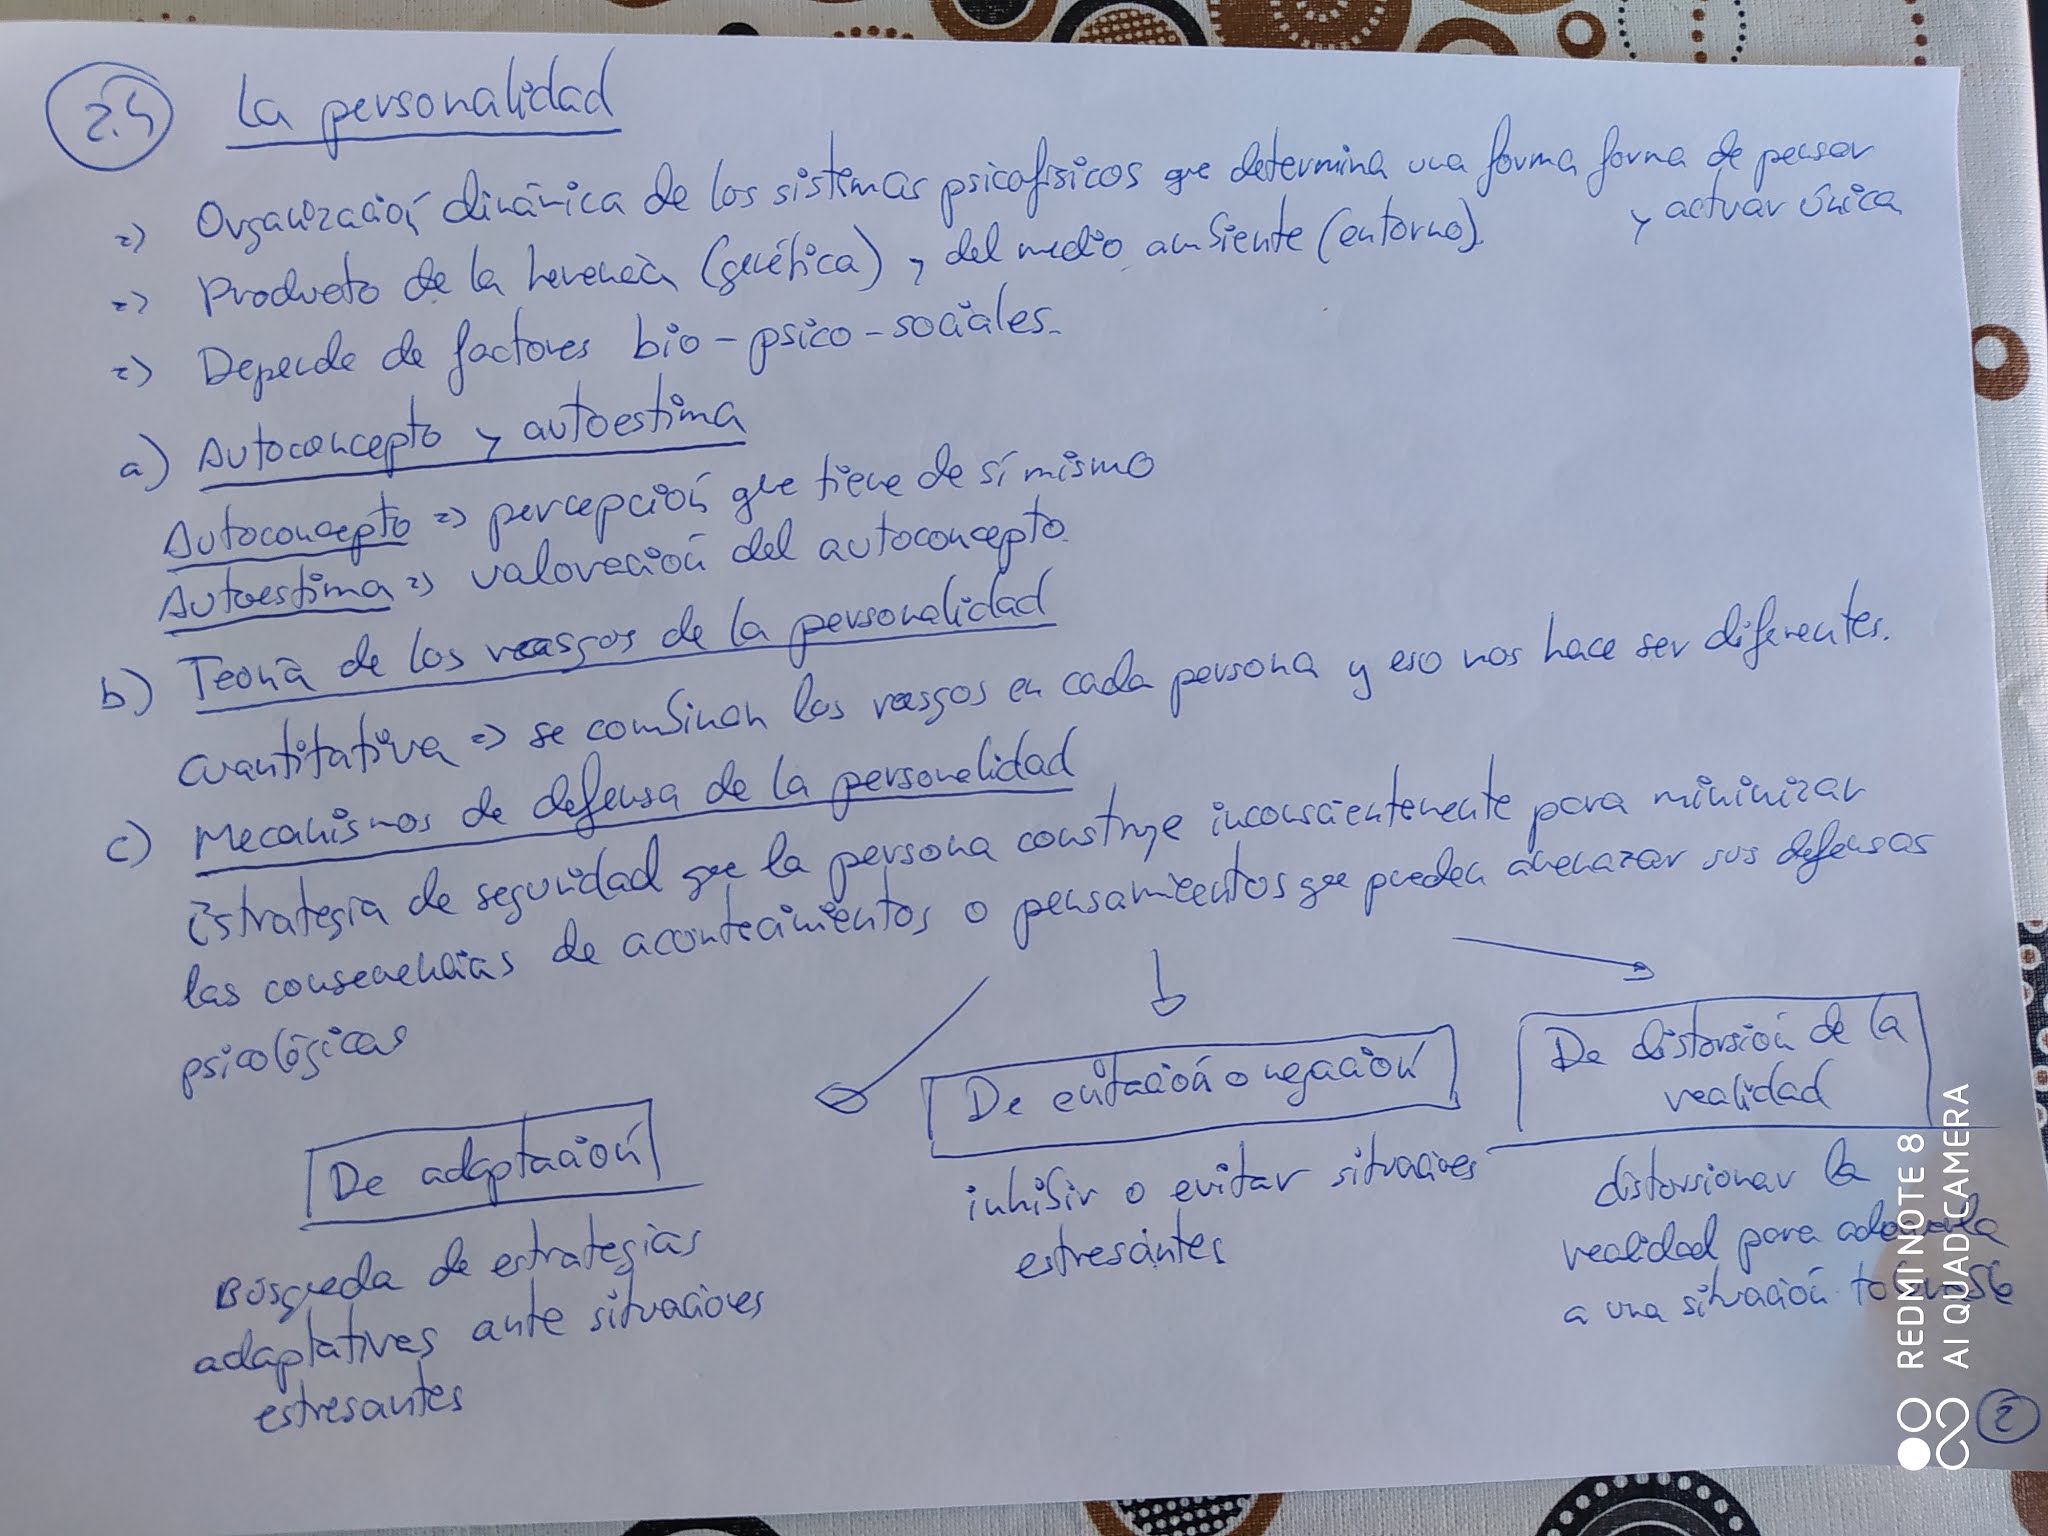 2.4 La personalidad
=> Organización dinámica de los sistemas psicofísicos que determina una forma forma de pensar
y actuar única
=> Producto de la herencia (genética) y del medio ambiente (entorno).
=> Depende de factores bio-psico-sociales.
a) Autoconcepto y autoestima
Autoconcepto => percepción que tiene de sí mismo
Autoestima => valoración del autoconcepto
b) Teoría de los rasgos de la personalidad
Cuantitativa => se combinan los rasgos en cada persona y eso nos hace ser diferentes.
c) Mecanismos de defensa de la personalidad
Estrategia de seguridad que la persona construye inconscientemente para minimizar
las consecuencias de acontecimientos o pensamientos que pueden amenazar sus defensas
psicológicas
De adaptación
Búsqueda de estrategias
adaptativas ante situaciones
estresantes
De evitación o negación
inhibir o evitar situaciones
estresantes
De distorsión de la
realidad
distorsionar la
realidad para adecuarla
a una situación tolerable
2
REDMI NOTE 8
AI QUAD CAMERA